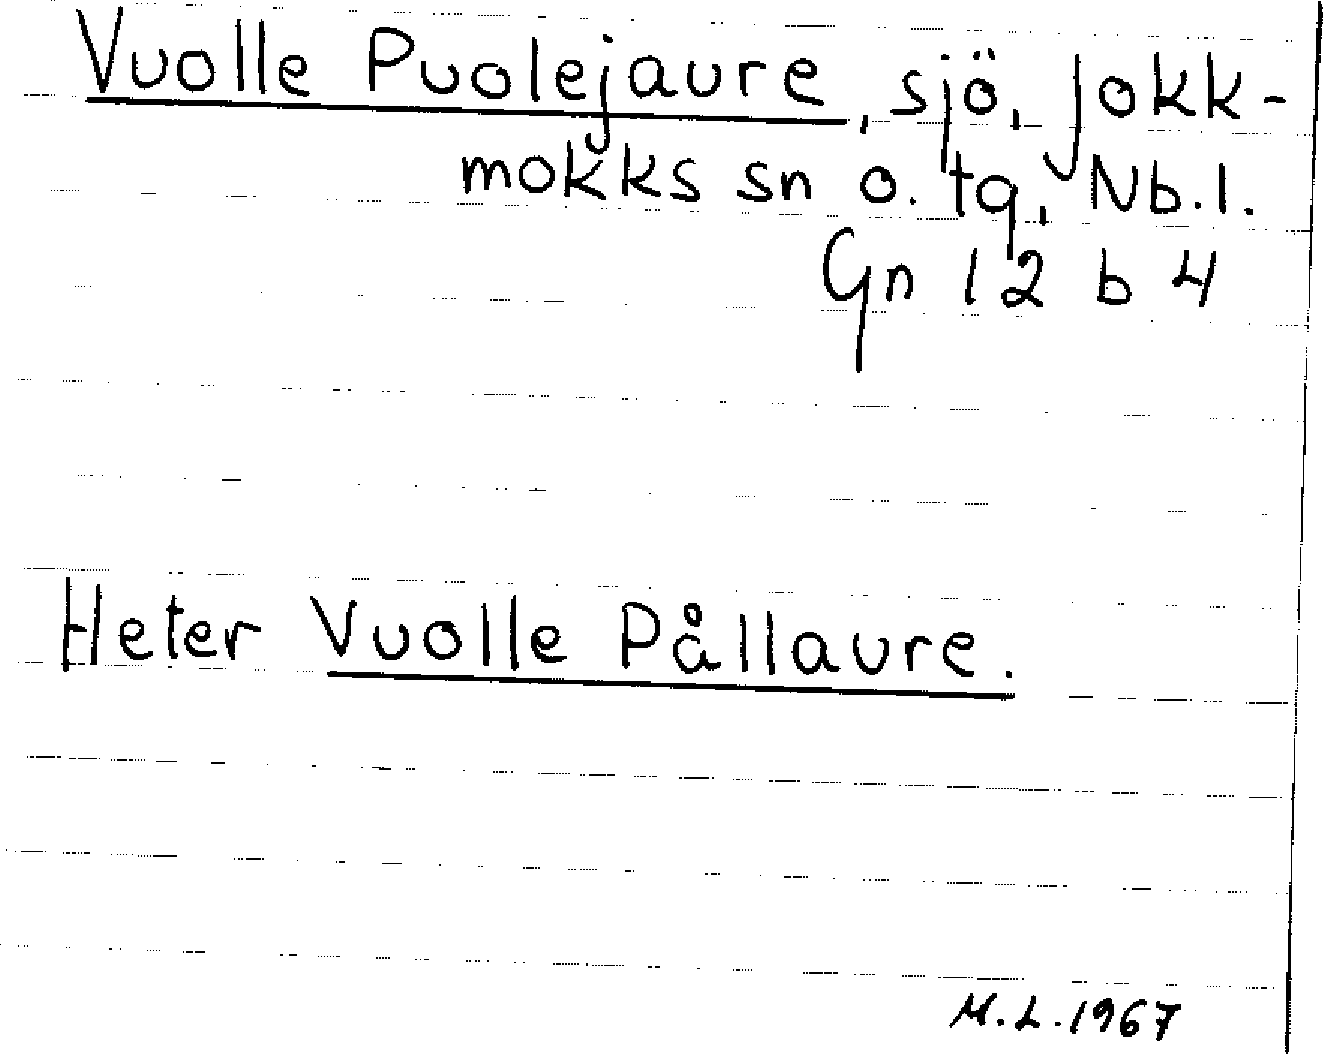 Vuolle Puolejaure, sjö, Jokk-
mokks sn o. tg, Nb.l.
Gn 12 b 4
Heter Vuolle Pållaure.
M.L.1967